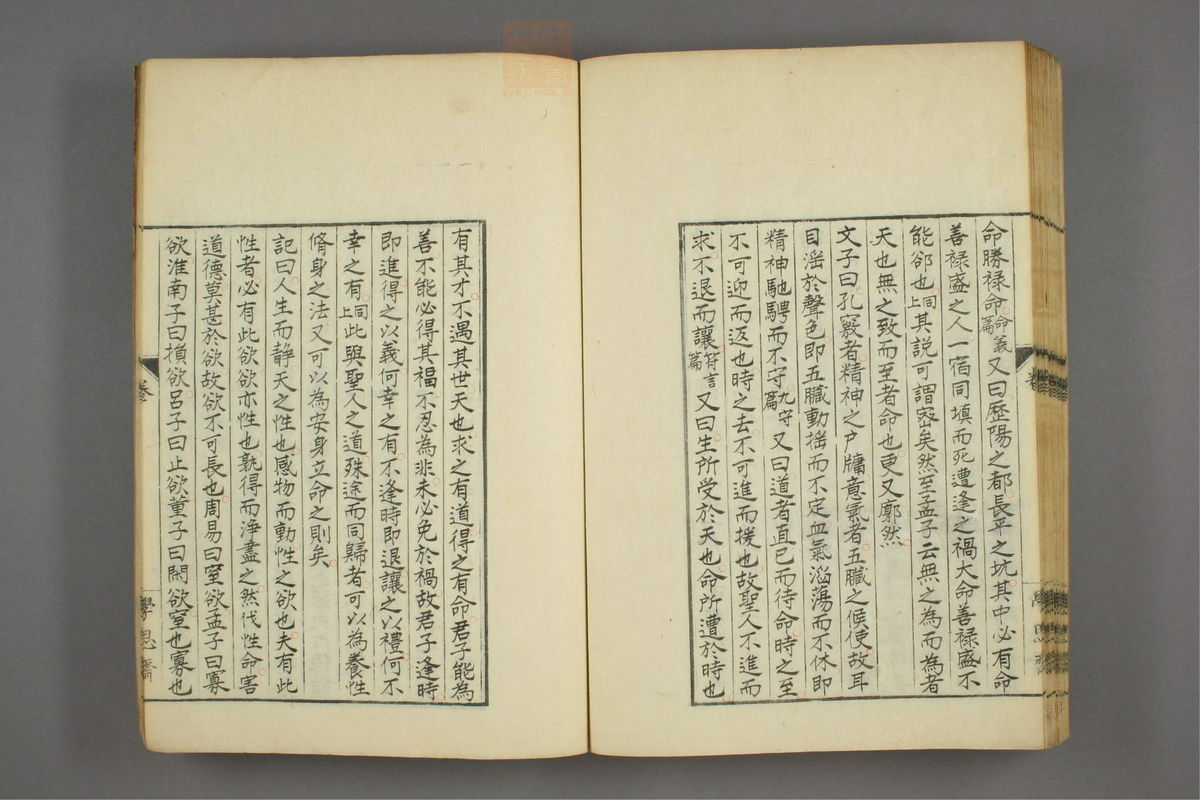 命勝禄命命義篇又曰歷陽之都長平之坑其中必有命
善禄盛之人一宿同填而死遭逢之禍大命善禄盛不
能郤也同上其說可謂密矣然至孟子云無之為而為者
天也無之致而至者命也更又廓然
文子曰孔竅者精神之户牖意氣者五臓之候使故耳
目滛於聲色即五臓動搖而不定血氣滔蕩而不休即
精神馳騁而不守九守篇又曰道者直已而待命時之至
不可迎而返也時之去不可進而援也故聖人不進而
求不退而讓符言篇又曰生所受於天也命所遭於時也
有其才不遇其世天也求之有道得之有命君子能為
善不能必得其福不忍為非未必免於禍故君子逢時
即進得之以義何幸之有不逢時即退讓之以禮何不
幸之有同上此與聖人之道殊途而同歸者可以為養性
脩身之法又可以為安身立命之則矣
記曰人生而静天之性也感物而動性之欲也夫有此
性者必有此欲欲亦性也孰得而浄盡之然伐性命害
道德莫甚於欲故欲不可長也周易曰窒欲孟子曰寡
欲淮南子曰損欲呂子曰止欲董子曰閑欲窒也寡也
卷
學思齋